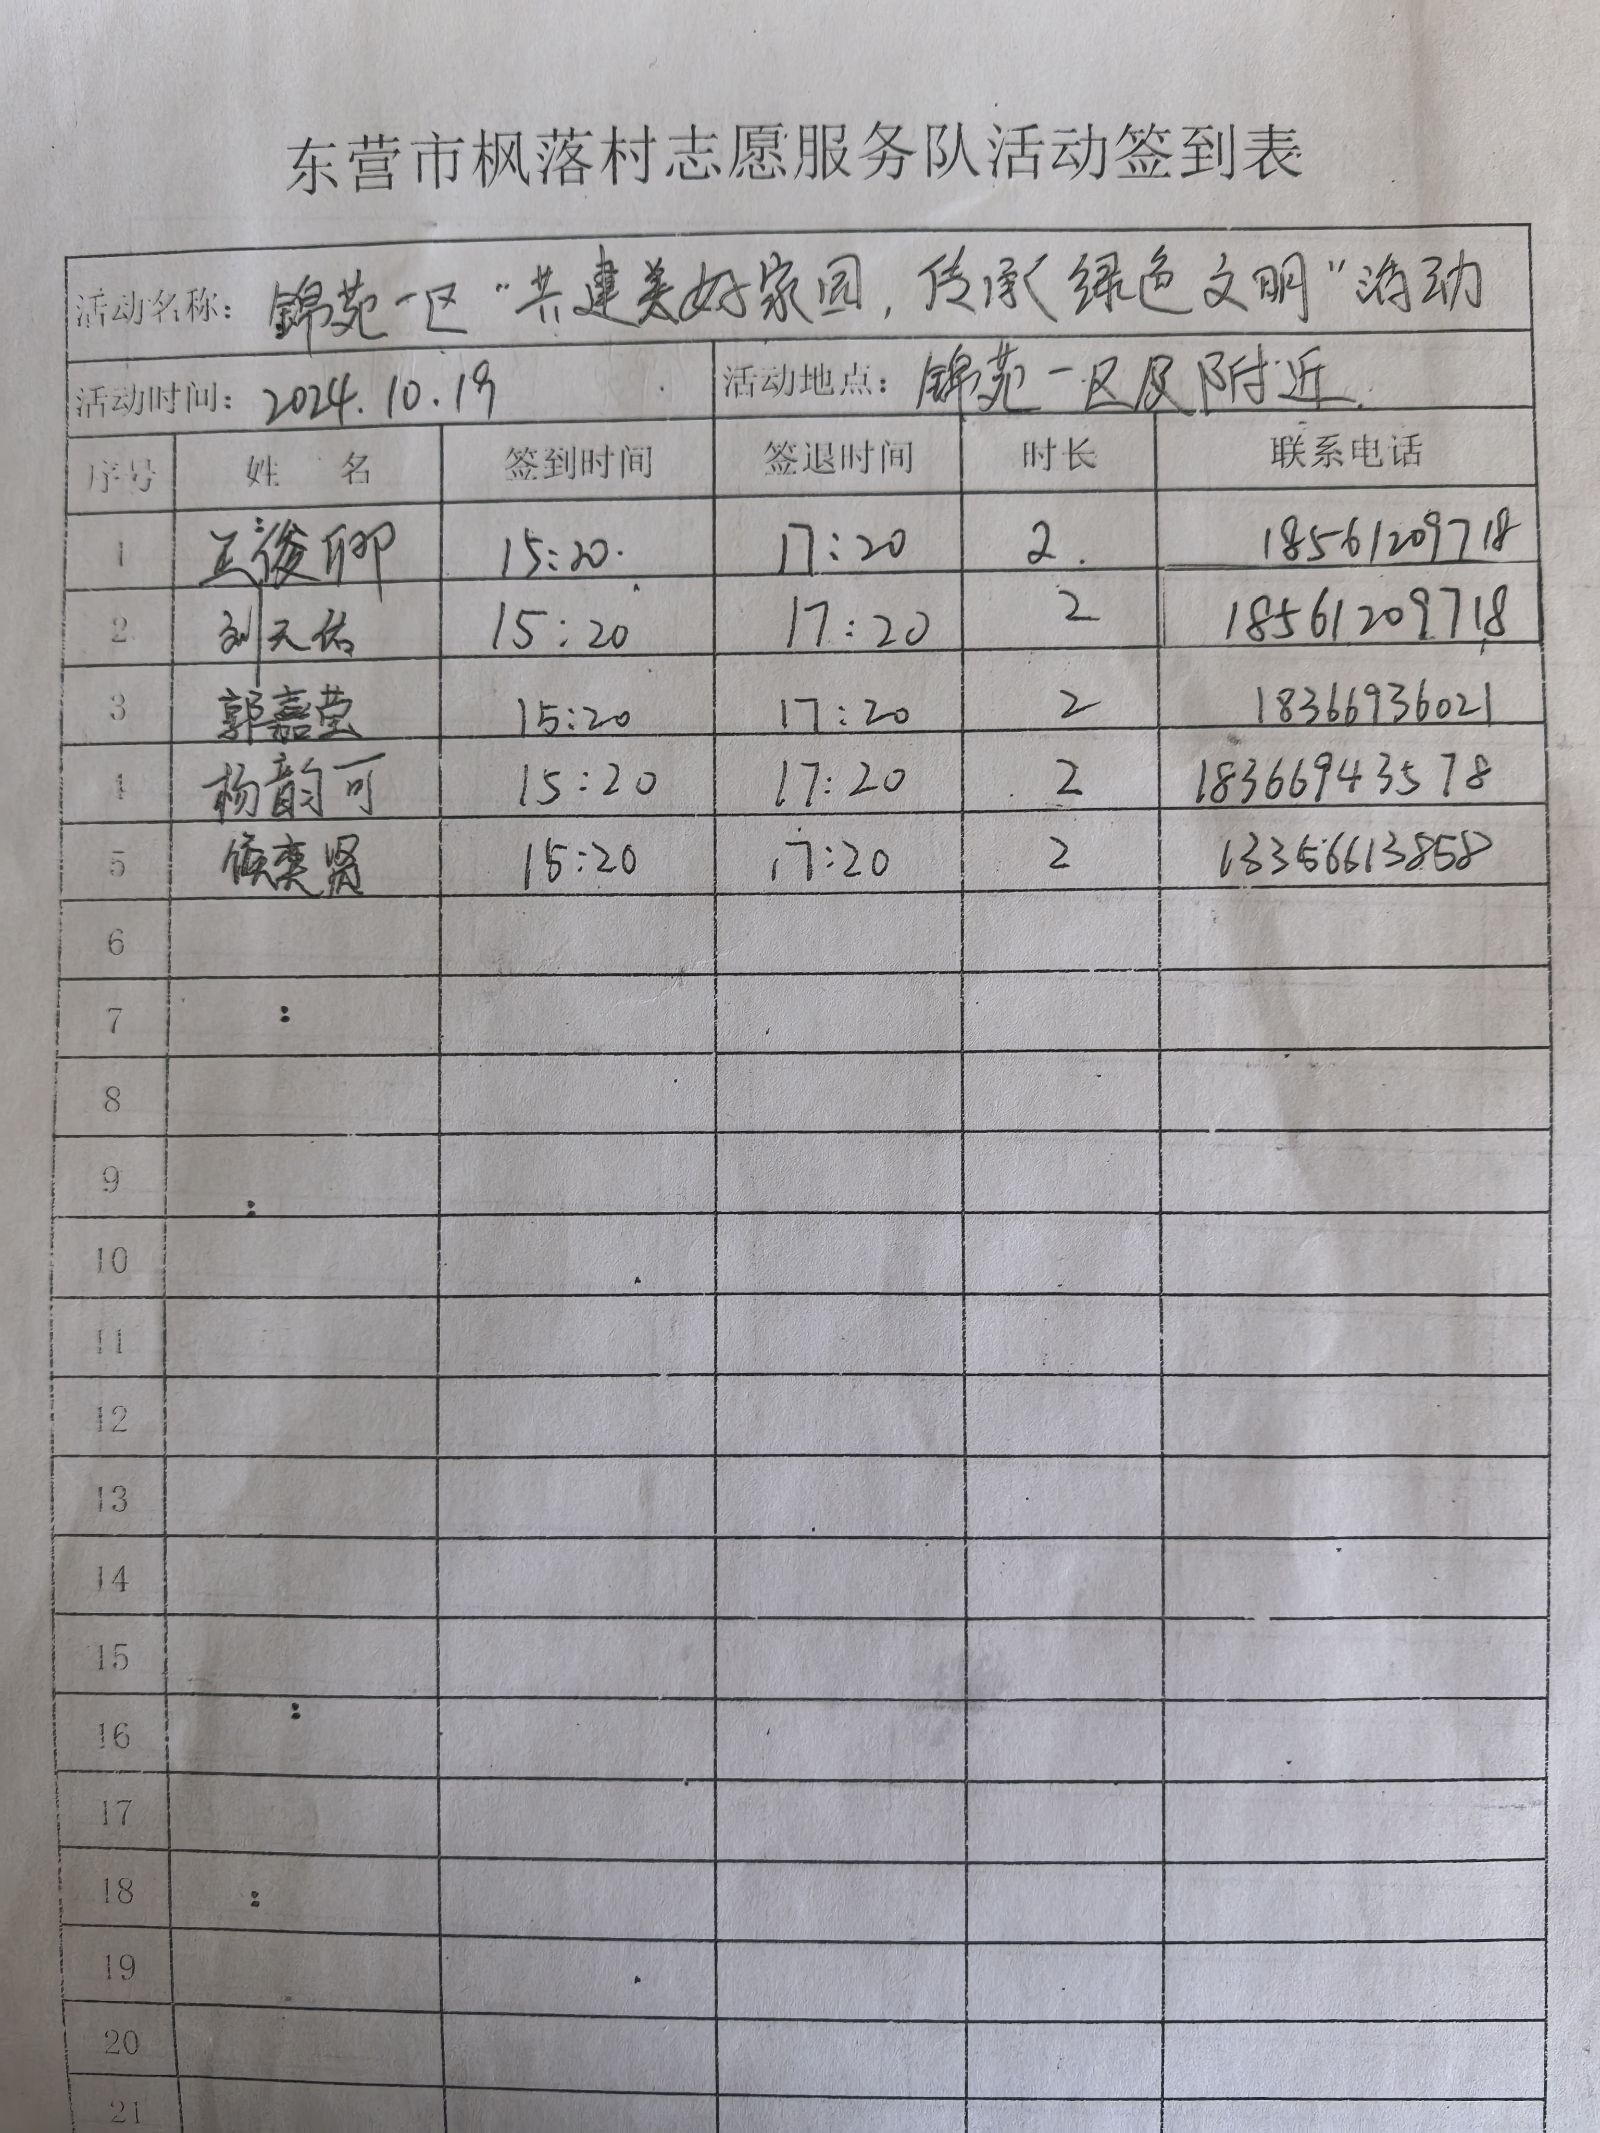 东营市枫落村志愿服务队活动签到表
活动名称：锦苑一区“共建美好家园，传承绿色文明”活动
活动时间：2024.10.19 活动地点：锦苑一区及附近
序号 姓 名 签到时间 签退时间 时长 联系电话
1 王俊卿 15:20 17:20 2 18561209718
2 刘天佑 15:20 17:20 2 18561209718
3 郭嘉莹 15:20 17:20 2 18366936021
4 杨韵可 15:20 17:20 2 18366943578
5 侯奕贤 15:20 17:20 2 13356613858
6
7
8
9
10
11
12
13
14
15
16
17
18
19
20
21